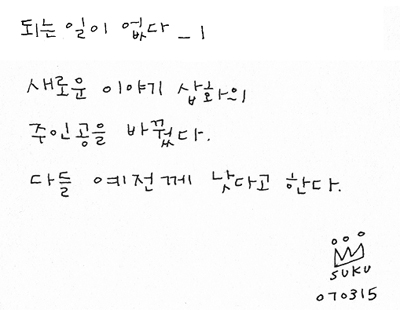 되는 일이 없다 _ 1
새로운 이야기 삽화의
주인공을 바꿨다.
다들 예전께 낫다고 한다.
SUKU
070315